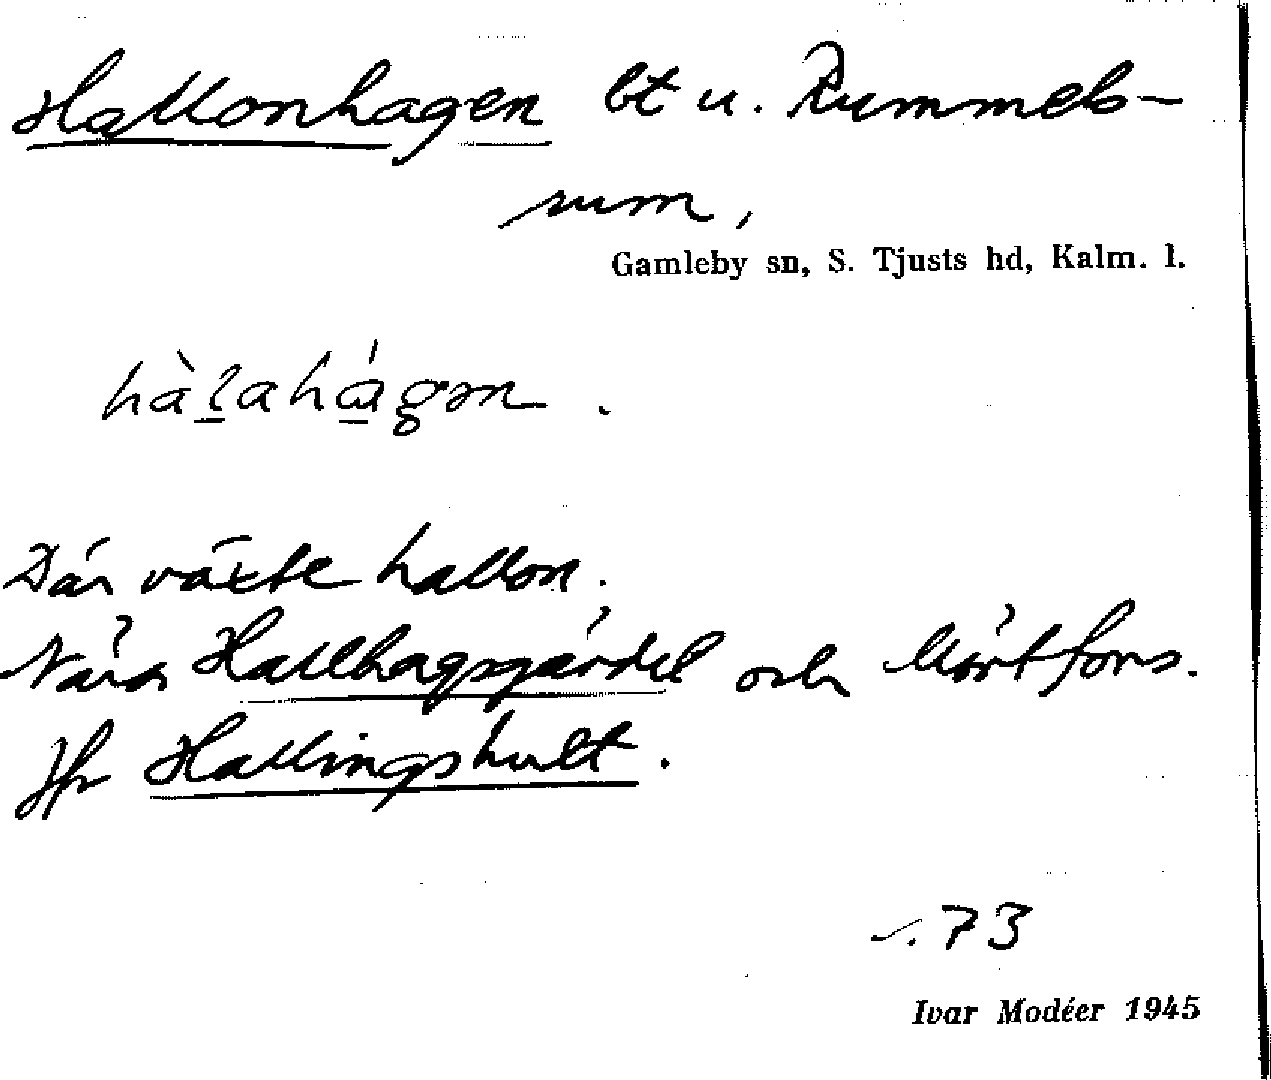 Hallonhagen bt u. Rummels-
rum,
Gamleby sn, S. Tjusts hd, Kalm. l.
hàlahágən.
Där växte hallon.
Nära Hallhagsgärdet och Mörtfors.
Jfr Hallingshult.
s. 73
Ivar Modéer 1945